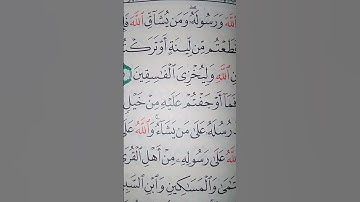 ٱللَّهَ وَرَسُولَهُۥ وَمَن يُشَآقِّ ٱللَّهَ
قَطَعْتُم مِّن لِّينَةٍ أَوْ تَرَكْتُ
ٱللَّهِ وَلِيُخْزِىَ ٱلْفَٰسِقِينَ
فَمَآ أَوْجَفْتُمْ عَلَيْهِ مِنْ خَيْلٍ
رُسُلَهُۥ عَلَىٰ مَن يَشَآءُ وَٱللَّهُ
ٱللَّهُ عَلَىٰ رَسُولِهِۦ مِنْ أَهْلِ ٱلْقُرَ
وَٱلْمَسَٰكِينِ وَٱبْنِ